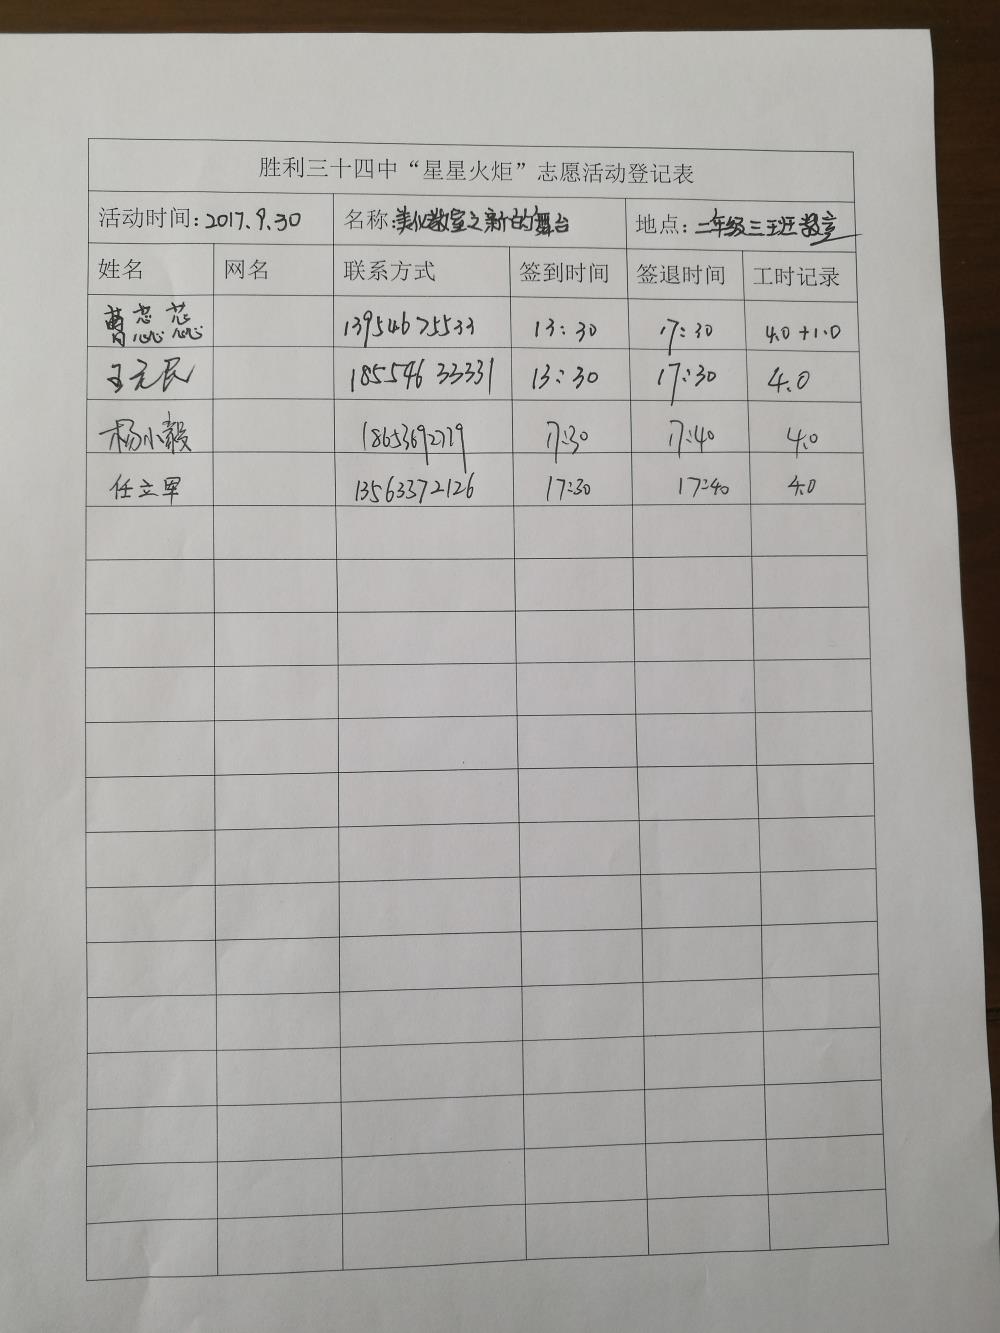 胜利三十四中“星星火炬”志愿活动登记表
活动时间：2017.9.30 名称：美化教室之新的舞台 地点：二年级三班教室
姓名 网名 联系方式 签到时间 签退时间 工时记录
曹蕊蕊 13954675533 13：30 17：30 4.0+1.0
王元民 18554633331 13：30 17：30 4.0
杨小毅 17:30 17:40 4.0
任立军 13563372126 17:30 17:40 4.0